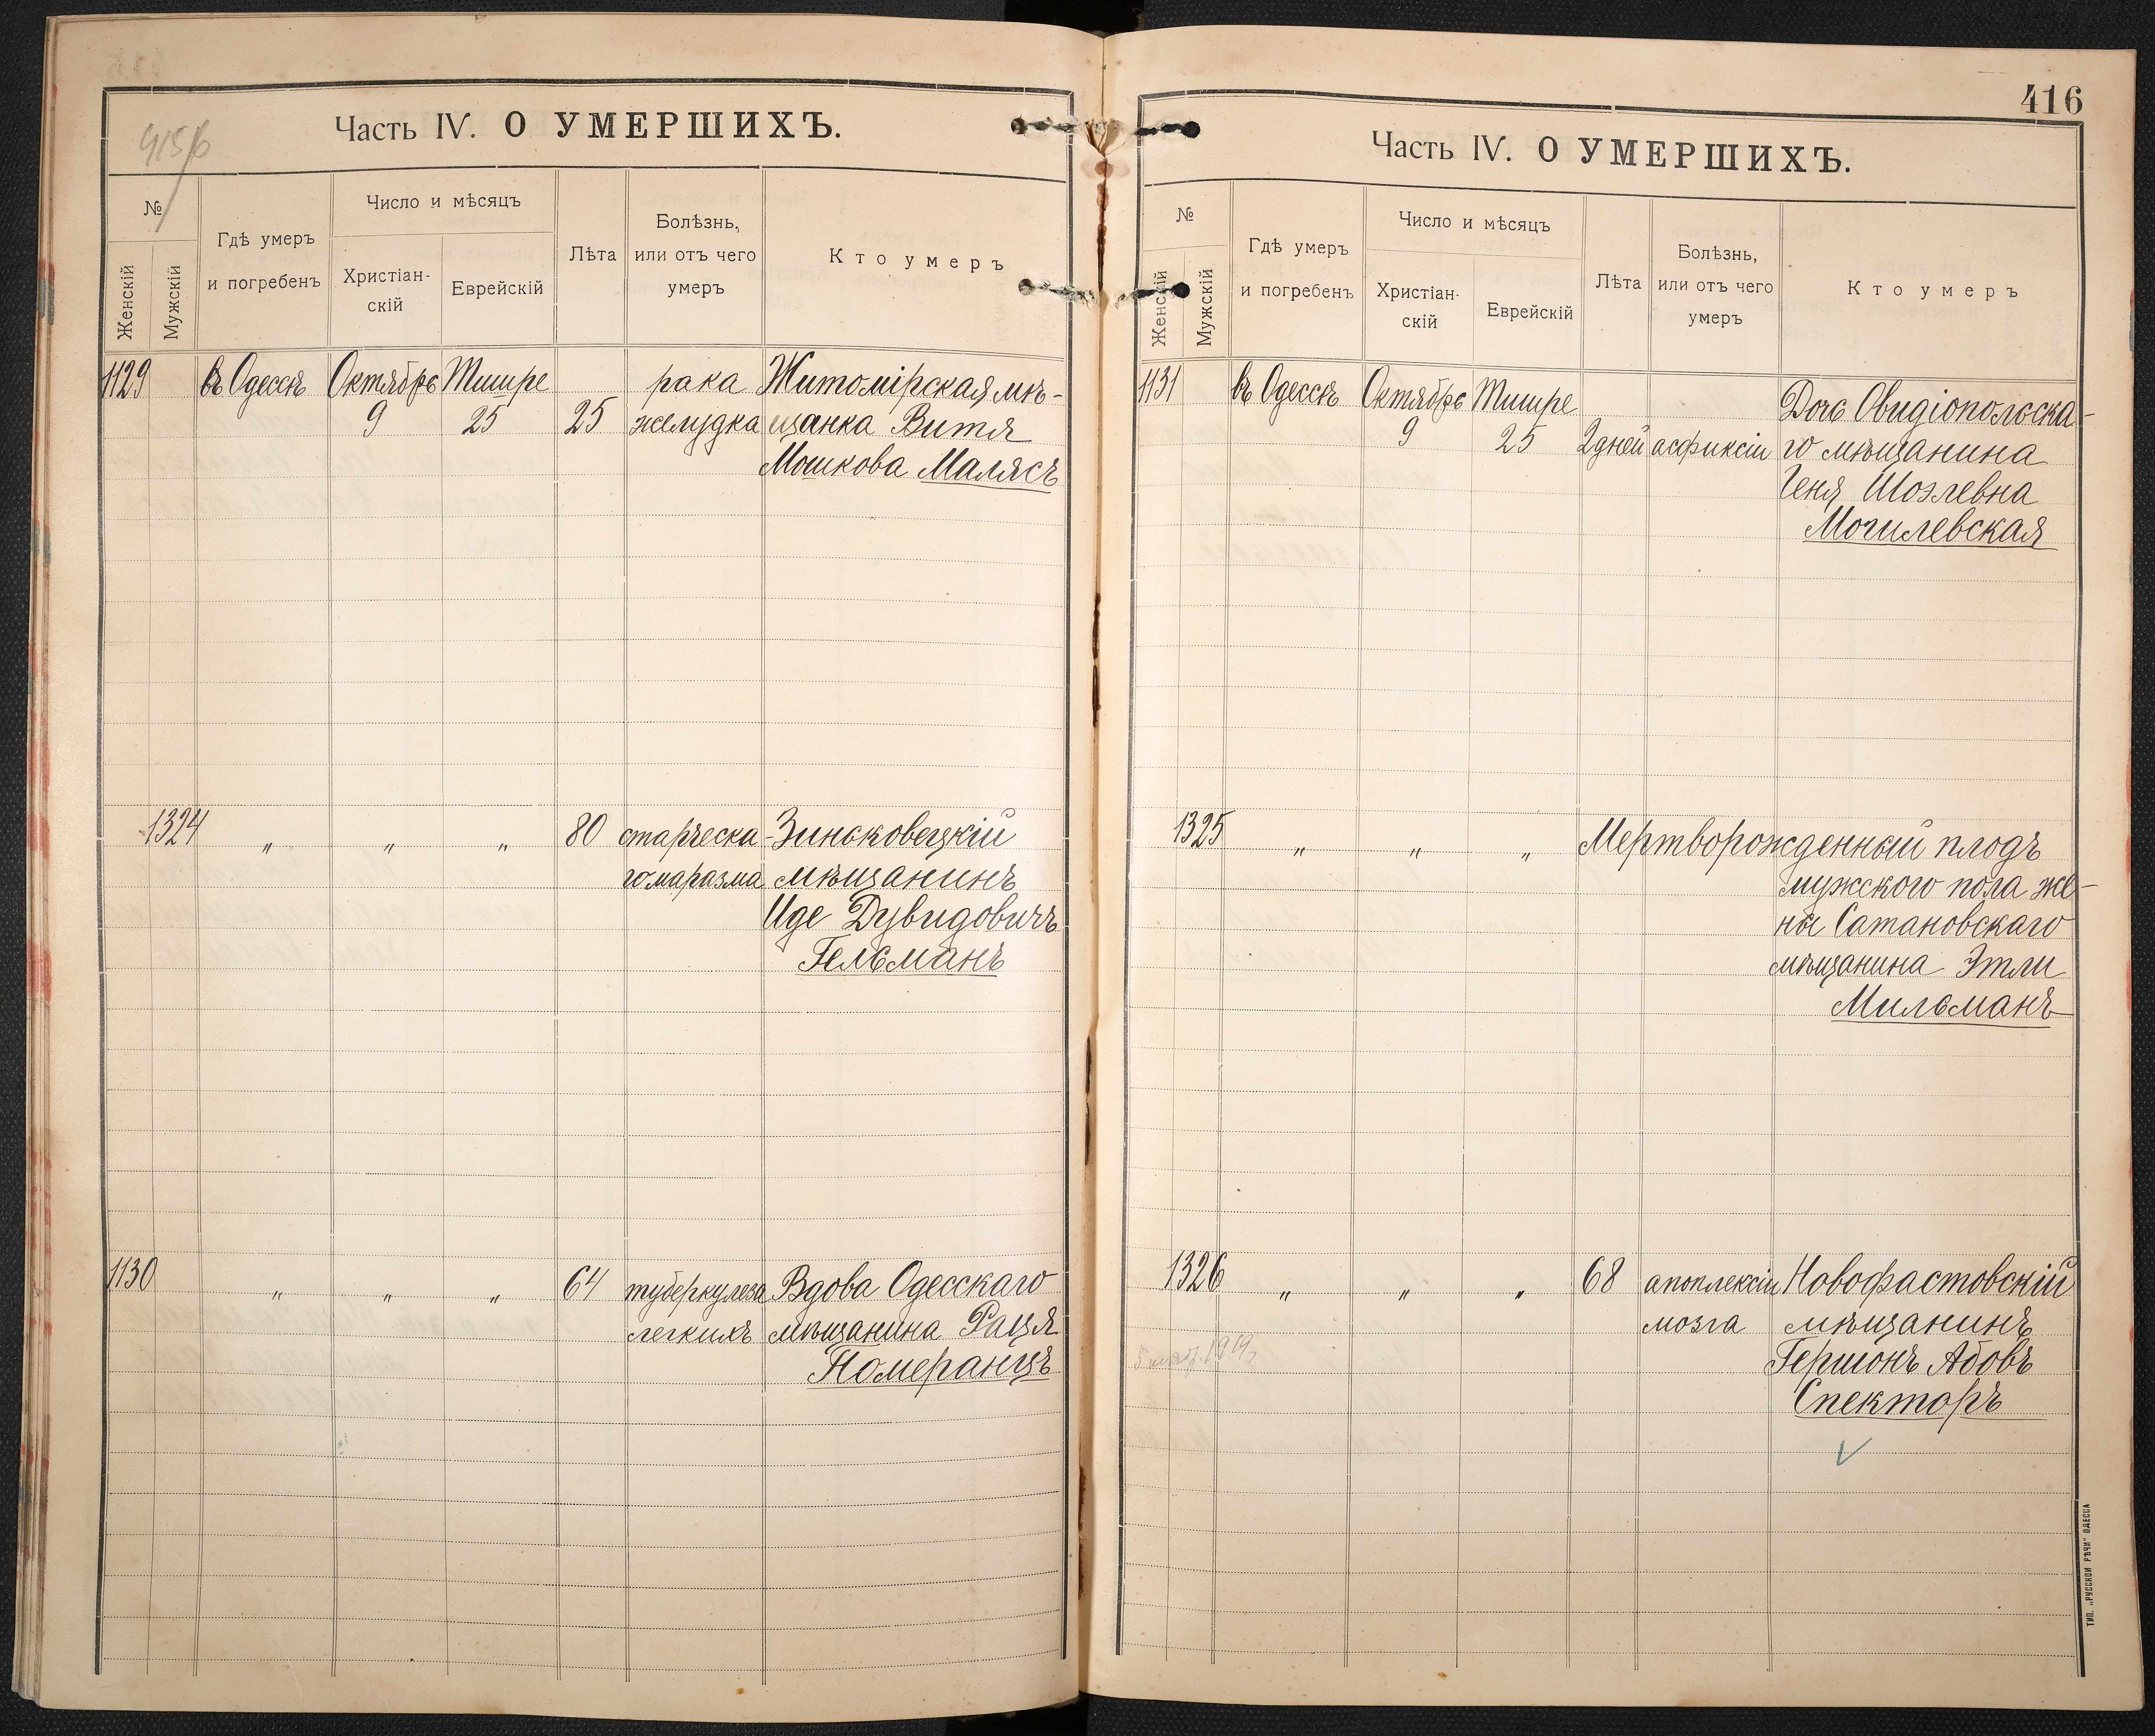 415/б
Часть IV. О УМЕРШИХЪ.
№
Женскій
Мужскій
Гдѣ умеръ
и погребенъ
Число и мѣсяцъ
Христіан-
скій
Еврейскій
Лѣта
Болѣзнь,
или отъ чего
умеръ
Кто умеръ
1129 въ Одессѣ Октябрь Тишре рака Житомірская мѣ-
9 25 25 желудка щанка Витя
Мошкова Малясъ
1324 " " " 80 старческа- Зиньковецкій
го маразма мѣщанинъ
Иде Дувидовичъ
Гельманъ
1130 " " " 64 туберкулеза Вдова Одесскаго
легкихъ мѣщанина Рация
Померанцъ
416
Часть IV. О УМЕРШИХЪ.
№
Женскій
Мужскій
Гдѣ умеръ
и погребенъ
Число и мѣсяцъ
Христіан-
скій
Еврейскій
Лѣта
Болѣзнь,
или отъ чего
умеръ
Кто умеръ
1131 въ Одессѣ Октябрь Тишре Дочь Овидіопольска-
9 25 2 дней асфиксіи го мѣщанина
Геня Шоэлевна
Могилевская
1325 " " " Мертворожденный плодъ
мужского пола же-
ны Сатановскаго
мѣщанина Этли
Мильманъ
1326 " " " 68 апоплексіи Новофастовскій
мозга мѣщанинъ
Гершонъ Абовъ
Спекторъ
1919
ТИП. „РУССКОЙ РѢЧИ" ОДЕССА